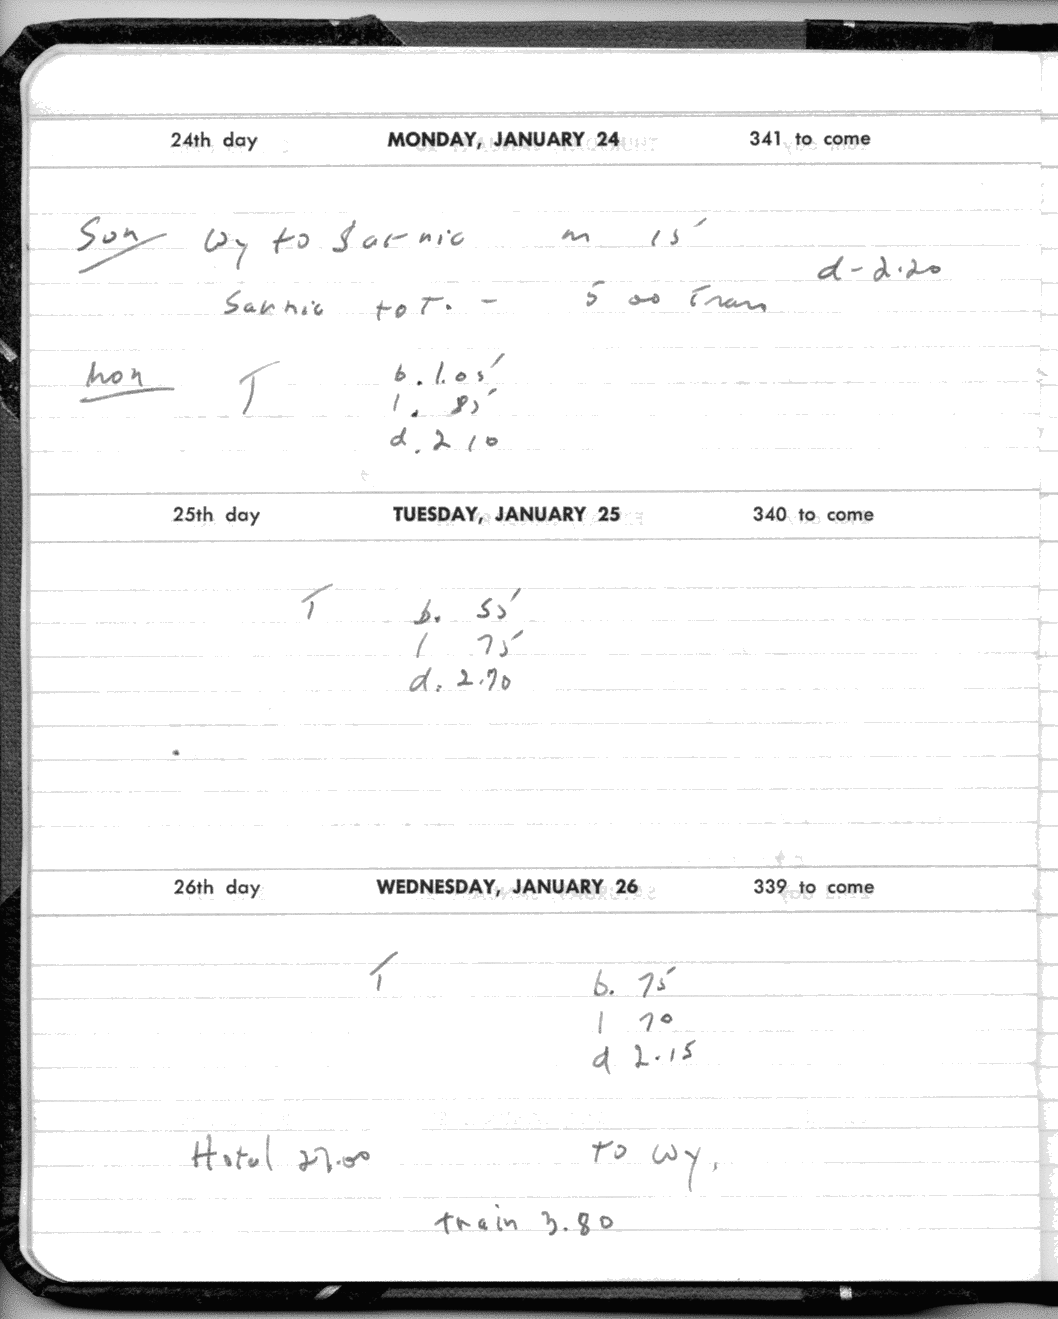 24th day MONDAY, JANUARY 24 341 to come
Sun Wy to Sarnia m 15
d - 2.20
Sarnia to T. - 5 00 Train
Mon T b. 1.05
l. 85
d. 2 10
25th day TUESDAY, JANUARY 25 340 to come
T b. 55
l 75
d. 2.70
26th day WEDNESDAY, JANUARY 26 339 to come
T b. 75
l 70
d 2.15
Hotel 27.00 to Wy.
train 3.80